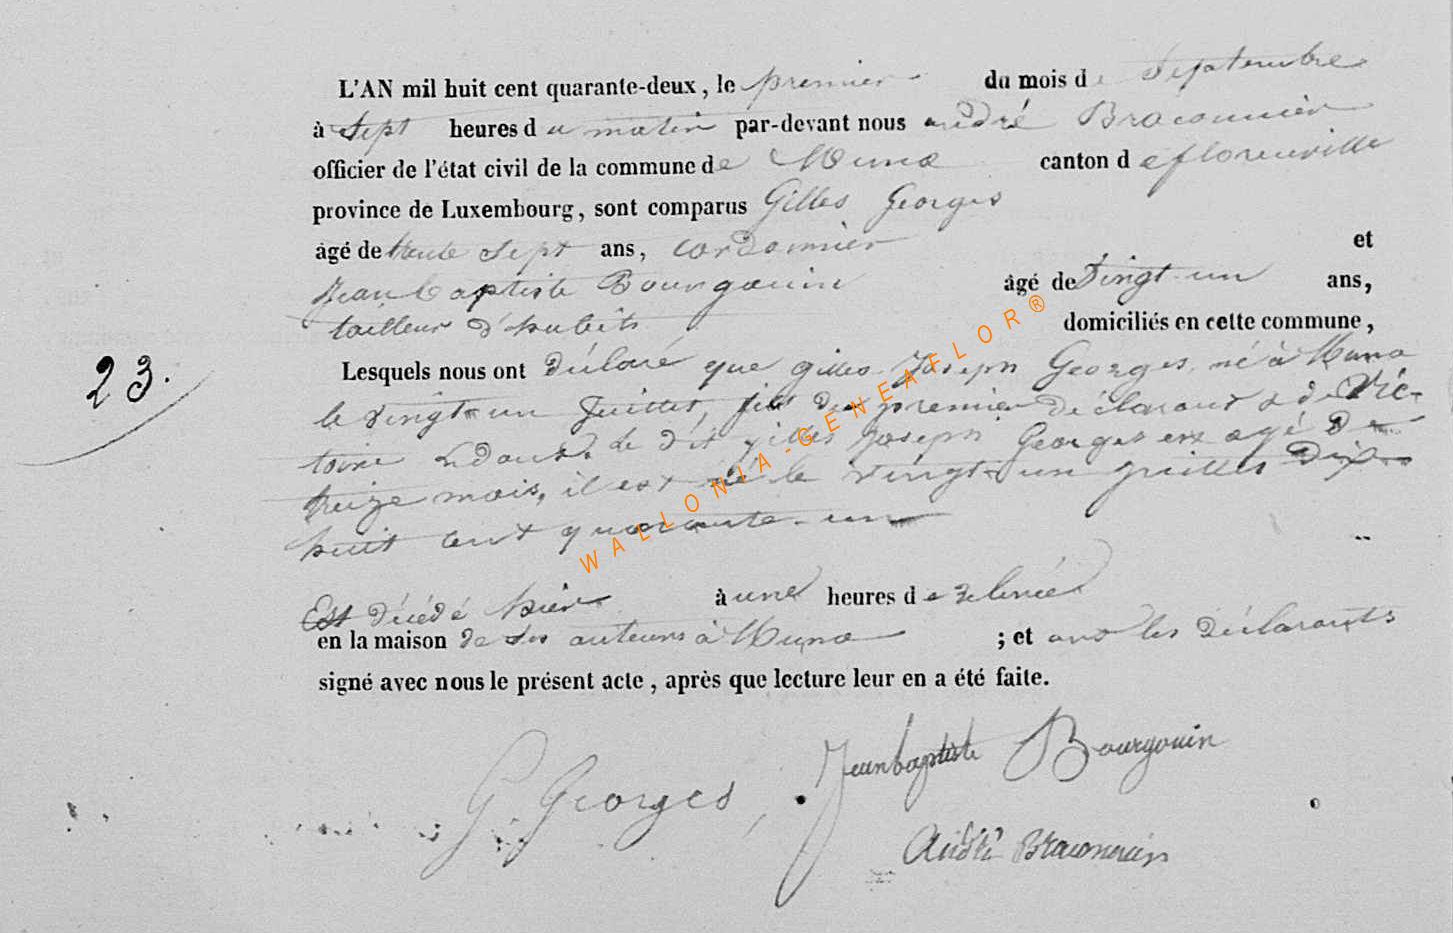 L'AN mil huit cent quarante-deux, le premier du mois de Septembre
à Sept heures du matin par-devant nous andré Braconnier
officier de l'état civil de la commune de Muno canton de florenville
province de Luxembourg, sont comparus Gilles Georges
âgé de trente sept ans, cordonnier et
Jean baptiste Bourgouin âgé de Vingt-un ans,
tailleur d'habits domiciliés en cette commune,
23.
Lesquels nous ont déclaré que gilles Joseph Georges, né à Muno
le vingt-un Juillet, fils du premier déclarant & de Vic-
toire le dit gilles Joseph Georges est agé de
treize mois, il est né le vingt-un juillet dix-
huit cent quarante-un
Est décédé hier à une heures de relevée
en la maison de ses auteurs à Muno ; et ont les déclarants
signé avec nous le présent acte, après que lecture leur en a été faite.
G Georges, Jeanbaptiste Bourgouin
André Braconnier
WALLONIA-GENEAFLOR®